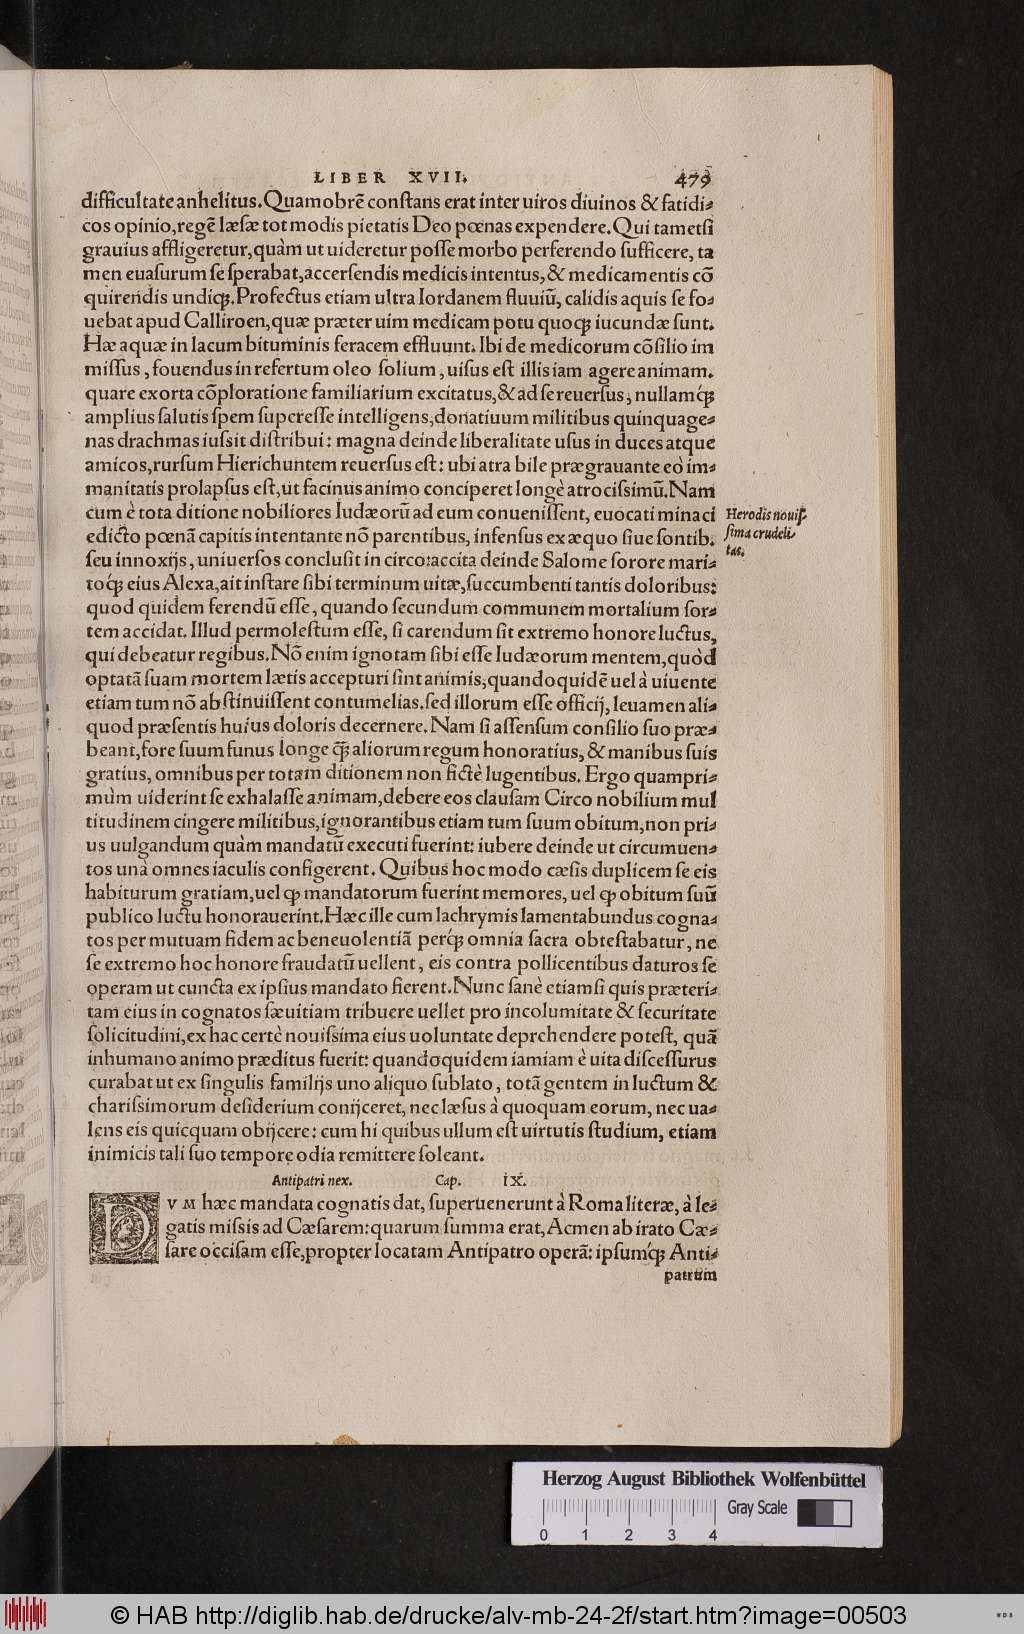 LIBER XVII. 479
difficultate anhelitus. Quamobrē constans erat inter uiros diuinos & fatidi-
cos opinio, regē læsæ tot modis pietatis Deo pœnas expendere. Qui tametsi
grauius affligeretur, quàm ut uideretur posse morbo perferendo sufficere, ta
men euasurum se sperabat, accersendis medicis intentus, & medicamentis cō
quirendis undiqȝ. Profectus etiam ultra Iordanem fluuiū, calidis aquis se fo-
uebat apud Calliroen, quæ præter uim medicam potu quoqȝ iucundæ sunt.
Hæ aquæ in lacum bituminis feracem effluunt. Ibi de medicorum cōsilio im
missus, fouendus in refertum oleo solium, uisus est illis iam agere animam.
quare exorta cōploratione familiarium excitatus, & ad se reuersus, nullamq́ȝ
amplius salutis spem superesse intelligens, donatiuum militibus quinquage-
nas drachmas iussit distribui: magna deinde liberalitate usus in duces atque
amicos, rursum Hierichuntem reuersus est: ubi atra bile prægrauante eò im-
manitatis prolapsus est, ut facinus animo conciperet longè atrocissimū. Nam
cum è tota ditione nobiliores Iudæorū ad eum conuenissent, euocati minaci
edicto pœnā capitis intentante nō parentibus, infensus ex æquo siue sontib.
seu innoxijs, uniuersos conclusit in circo: accita deinde Salome sorore mari-
toq́ȝ eius Alexa, ait instare sibi terminum uitæ, succumbenti tantis doloribus:
quod quidem ferendū esse, quando secundum communem mortalium sor-
tem accidat. Illud permolestum esse, si carendum sit extremo honore luctus,
qui debeatur regibus. Nō enim ignotam sibi esse Iudæorum mentem, quòd
optatā suam mortem lætis accepturi sint animis, quandoquidē uel à uiuente
etiam tum nō abstinuissent contumelias. sed illorum esse officij, leuamen ali-
quod præsentis huius doloris decernere. Nam si assensum consilio suo præ-
beant, fore suum funus longe q̄ȝ aliorum regum honoratius, & manibus suis
gratius, omnibus per totam ditionem non fictè lugentibus. Ergo quampri-
mùm uiderint se exhalasse animam, debere eos clausam Circo nobilium mul
titudinem cingere militibus, ignorantibus etiam tum suum obitum, non pri-
us uulgandum quàm mandatū executi fuerint: iubere deinde ut circumuen-
tos unà omnes iaculis configerent. Quibus hoc modo cæsis duplicem se eis
habiturum gratiam, uel ꝙ mandatorum fuerint memores, uel ꝙ obitum suū
publico luctu honorauerint. Hæc ille cum lachrymis lamentabundus cogna-
tos per mutuam fidem ac beneuolentiā perq́ȝ omnia sacra obtestabatur, ne
se extremo hoc honore fraudatū uellent, eis contra pollicentibus daturos se
operam ut cuncta ex ipsius mandato fierent. Nunc sanè etiamsi quis præteri-
tam eius in cognatos sæuitiam tribuere uellet pro incolumitate & securitate
solicitudini, ex hac certè nouissima eius uoluntate deprehendere potest, quā
inhumano animo præditus fuerit: quandoquidem iamiam è uita discessurus
curabat ut ex singulis familijs uno aliquo sublato, totā gentem in luctum &
charissimorum desiderium conijceret, nec læsus à quoquam eorum, nec ua-
lens eis quicquam obijcere: cum hi quibus ullum est uirtutis studium, etiam
inimicis tali suo tempore odia remittere soleant.
Herodis nouis-
sima crudeli-
tas.
Antipatri nex. Cap. IX.
DVM hæc mandata cognatis dat, superuenerunt à Roma literæ, à le-
gatis missis ad Cæsarem: quarum summa erat, Acmen ab irato Cæ-
sare occisam esse, propter locatam Antipatro operā: ipsumq́ȝ Anti-
patrum
Herzog August Bibliothek Wolfenbüttel
Gray Scale
0 1 2 3 4
© HAB http://diglib.hab.de/drucke/alv-mb-24-2f/start.htm?image=00503